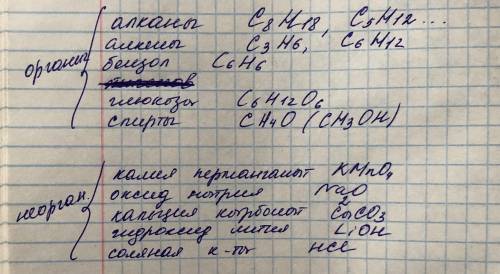 органич
алканы C8H18, C5H12...
алкены C3H6, C6H12
бензол C6H6
глюкоза C6H12O6
спирты CH4O (CH3OH)
неорган.
калия перманганат KMnO4
оксид натрия Na2O
кальция карбонат CaCO3
гидроксид лития LiOH
соляная к-та HCl